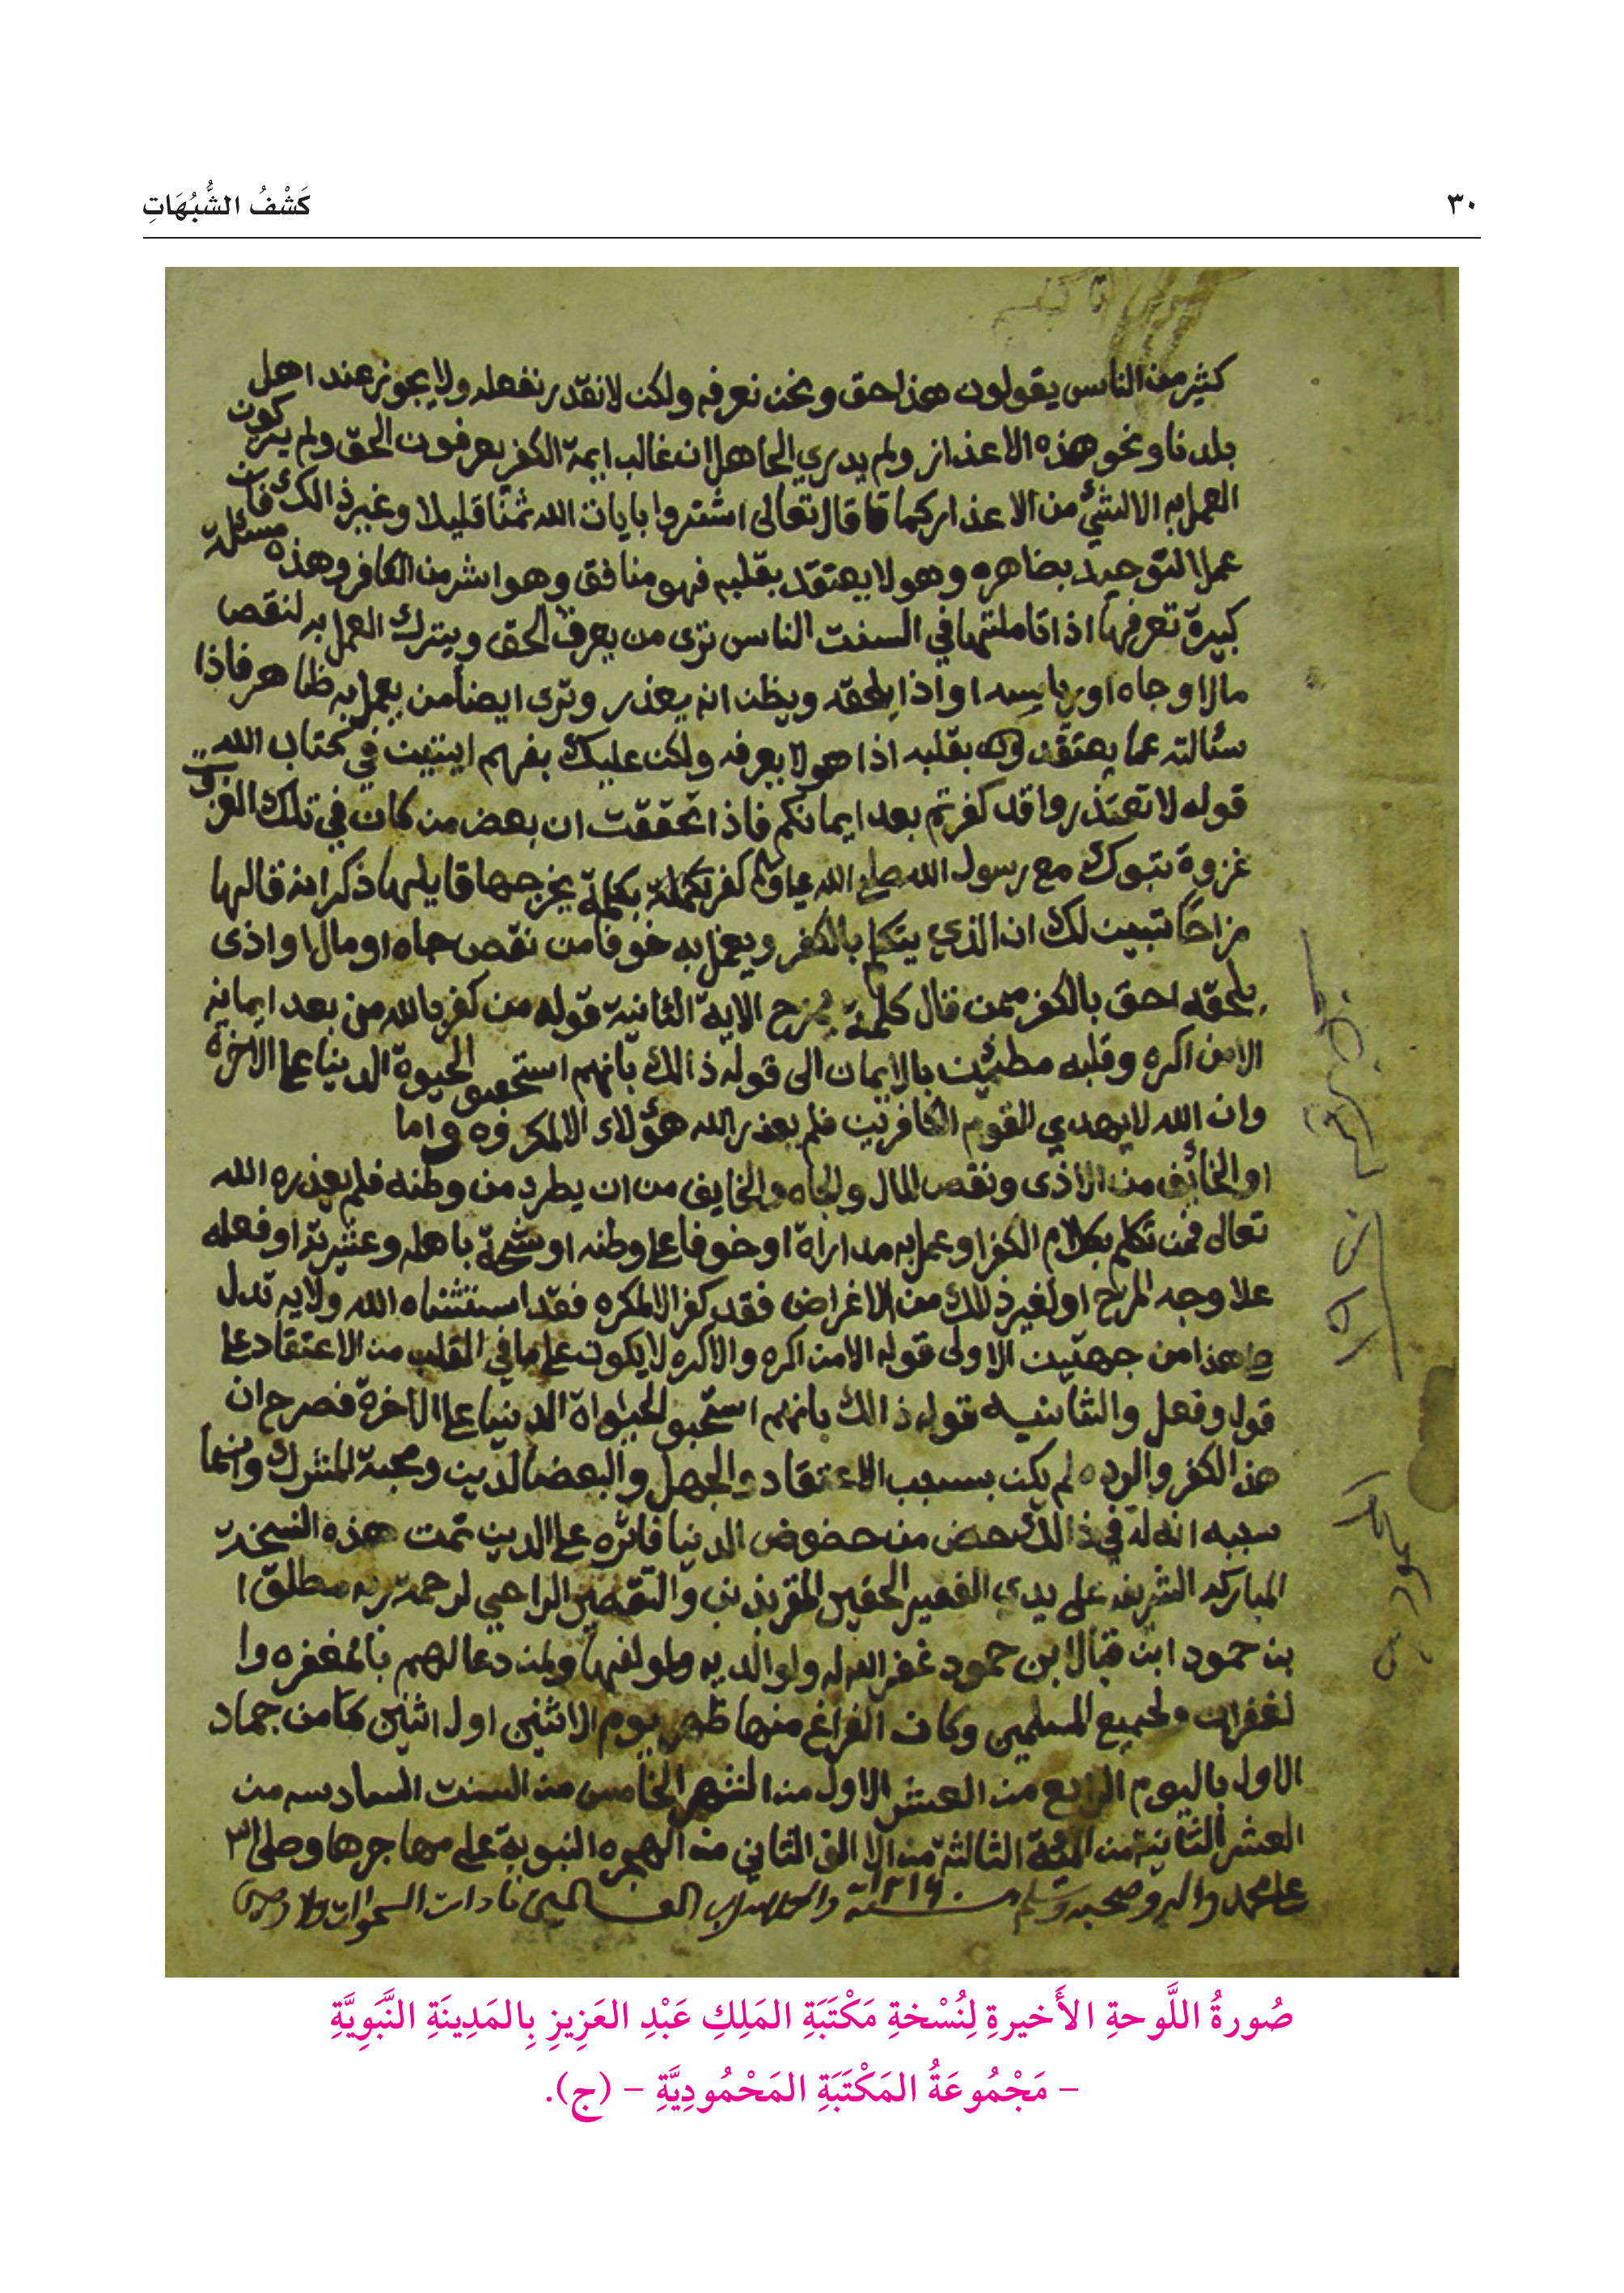 ٣٠
كَشْفُ الشُّبُهَاتِ
كثير من الناس يقولون هذا حق ونحن نعرفه ولكن لا نقدر نفعله ولا يجوز عند اهل
بلدنا ونحو هذه الاعذار ولم يدري الجاهل ان غالب ايمة الكفر يعرفون الحق ولم يتركون
العمل به الا لشئ من الاعذار كما قا قال تعالى اشتروا بايات الله ثمنًا قليلا وغير ذالك فان
عمل التوحيد بضاهره وهو لا يعتقد بقلبه فهو منافق وهو اشر من الكافر وهذه مسئلة
كبيرة تعرفها اذا تاملتها في السنت الناس ترى من يعرف الحق ويترك العمل به لنقص
مال او جاه او يلحقه ويظن انه يعذر وترى ايضا من يعمل به ظاهر فاذا
سئالته عما يعتقد بقلبه اذا هو لا يعرفه ولكن عليك بفهم ايتين في كتاب الله
قوله لا تعتذروا قد كفرتم بعد ايمانكم فاذا تحققت ان بعض من كان في تلك
غزوة تبوك مع رسول الله صلى الله كفر بكلمة يخرجها ذكر انه قالها
مزاحًا تبين لك ان الذي يتكلم بالكفر ويعمل به خوفا من نقص جاه او مال او اذى
يلحقه احق بالكفر ممن قال كلمة يمزح الاية الثانية قوله من كفر بالله من بعد ايمانه
الا من اكره وقلبه مطمئن بالايمان الى قوله ذالك بانهم الحيوة الدنيا على الاخرة
وان الله لا يهدي القوم الكافرين فلم يعذر الله هؤلاء الا المكروه واما
او الخائف من الاذى ونقص المال والجاه والخايف من ان يطرد من وطنه فلم يعذره الله
تعالى فمن تكلم بكلام الكفر او عمل به مداراة او خوفا على وطنه او باهله وعشيرته او فعله
علا وجه المزح او لغير ذلك من الاغراض فقد كفر الا المكره فقد استثناه الله ولايه تدل
هذا من جهتين الاولى قوله الا من اكره والاكره لا يكون على ما في القلب من الاعتقاد على
قول وفعل والثانيه قوله ذالك بانهم استحبو الحيواة الدنيا على الاخرة فصرح ان
هذ الكفر والرده لم يكن بسبب الاعتقاد والجهل والبعض الدين ومحبة الشرك وانما
سببه انه له في ذالك حض من حضوض الدنيا فاثره على الدين تمت هذه النسخه
المباركه الشريفه على يدي الفقير الحقير المقر بذنب والتقصير الراجي لرحمة ربه مطلق ا
بن حمود ابن ابن حمود غفر الله له ولوالديه ولمن دعا لهم بالمغفره وا
لغفران ولجميع المسلمين وكان الفراغ منها ظهر يوم الاثنين اول اثنين من جماد
الاول باليوم الرابع من العشر الاول من الشهر الخامس من السنت السادسه من
العشر الثانية من المئة الثالثة من الالف الثاني من الهجره النبوية على مهاجرها وصلى
على محمد واله وصحبه وسلم سنة ١٢١٦
صُورةُ اللَّوحةِ الأَخيرةِ لِنُسْخةِ مَكْتَبَةِ المَلِكِ عَبْدِ العَزِيزِ بِالمَدِينَةِ النَّبَوِيَّةِ
– مَجْمُوعَةُ المَكْتَبَةِ المَحْمُودِيَّةِ – (ج).